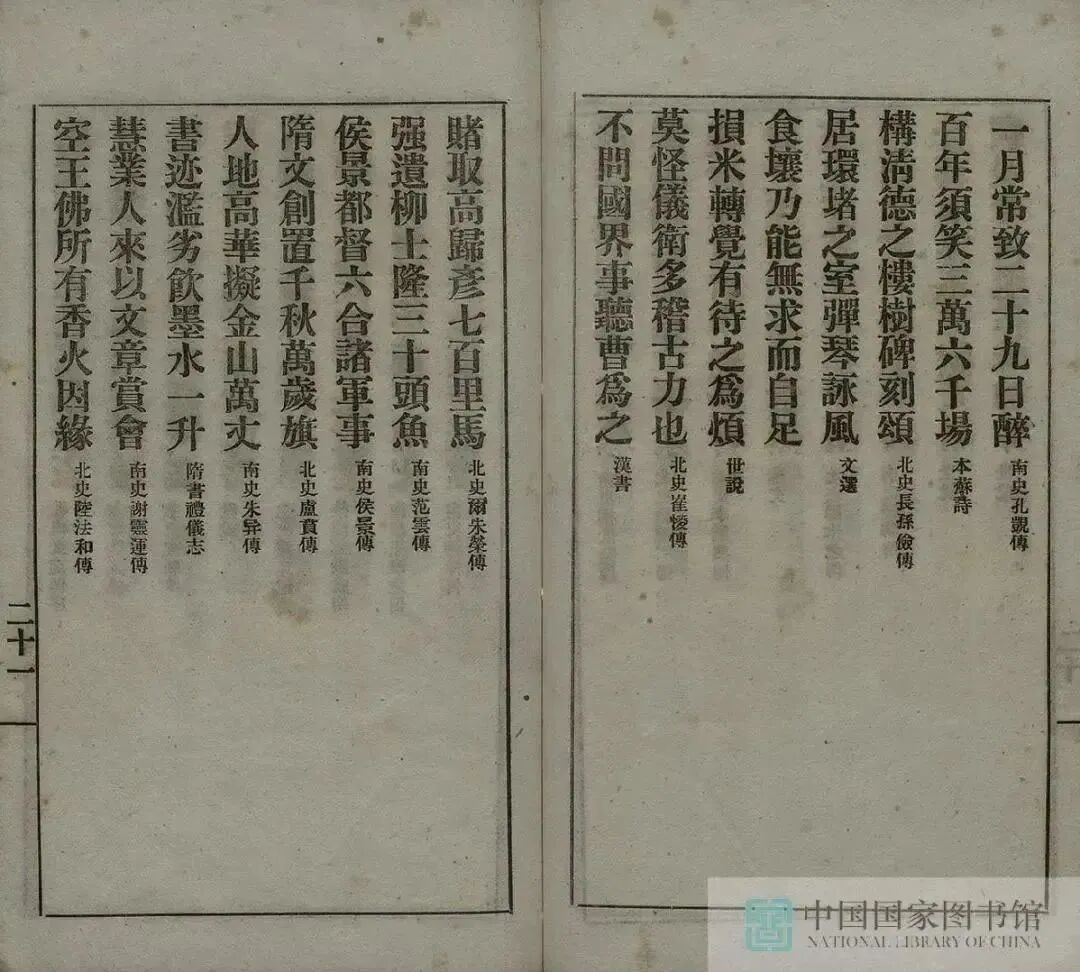 一月常致二十九日醉 南史孔覬傳
百年須笑三萬六千場 本蘇詩
構清德之樓樹碑刻頌 北史長孫儉傳
居環堵之室彈琴詠風 文選
食壤乃能無求而自足
損米轉覺有待之爲煩 世說
莫怪儀衛多稽古力也 北史崔㥄傳
不問國界事聽曹爲之 漢書
賭取高歸彥七百里馬 北史爾朱榮傳
强遺柳士隆三十頭魚 南史范雲傳
侯景都督六合諸軍事 南史侯景傳
隋文創置千秋萬歲旗 北史盧賁傳
人地高華擬金山萬丈 南史朱异傳
書迹濫劣飲墨水一升 隋書禮儀志
慧業人來以文章賞會 南史謝靈運傳
空王佛所有香火因緣 北史陸法和傳
二十一
中国国家图书馆
NATIONAL LIBRARY OF CHINA